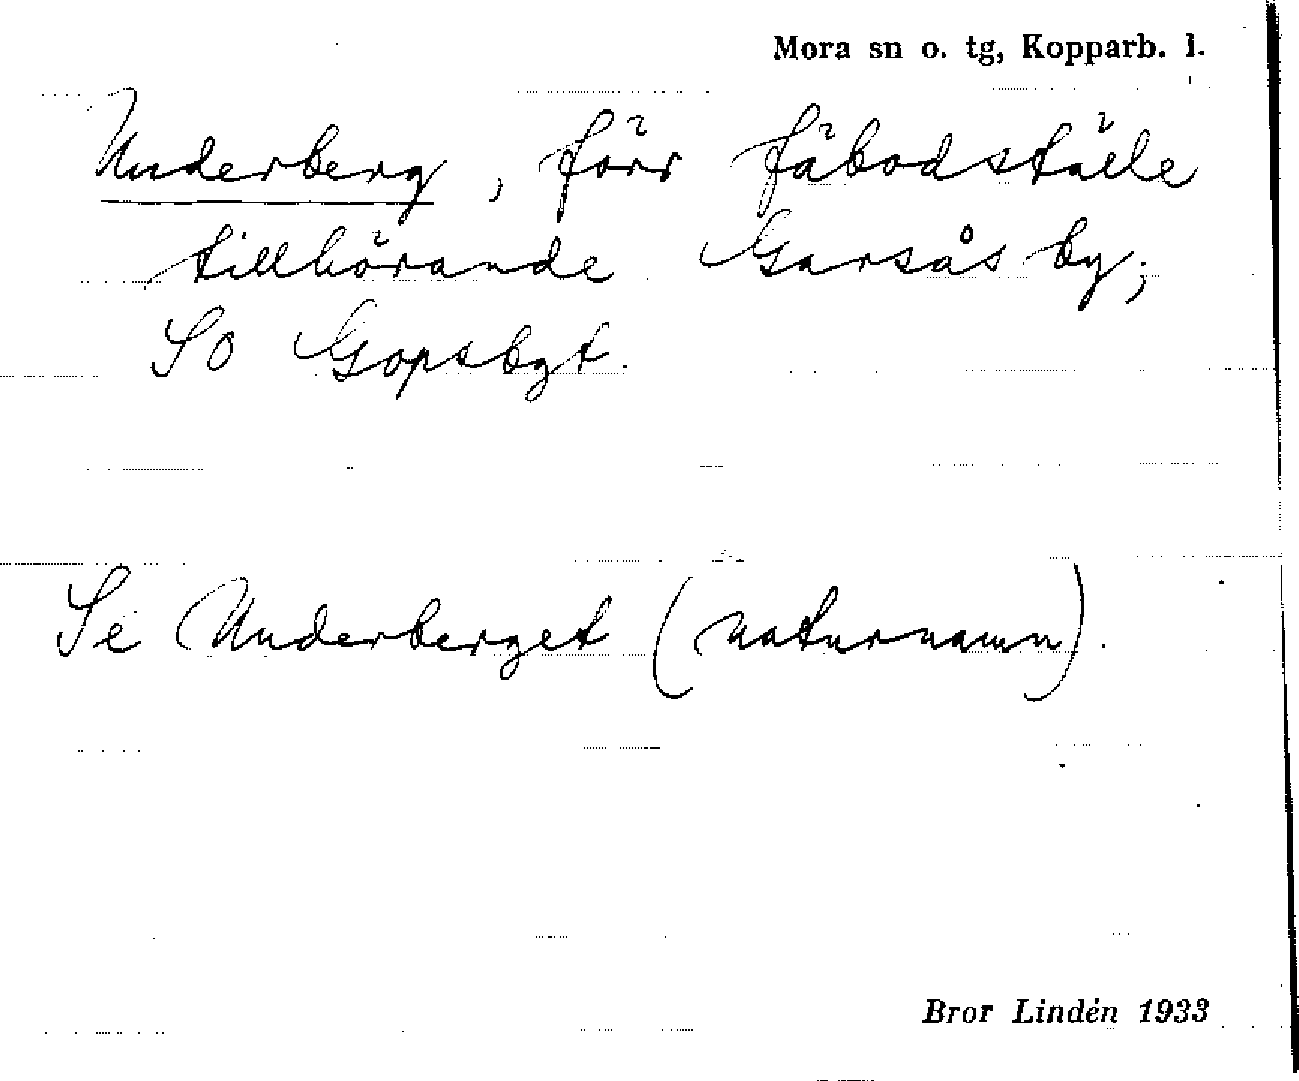 Mora sn o. tg, Kopparb. l.
Underberg, förr fäbodställe
tillhörande Garsås by;
SO Gopsbgt.
Se Underberget (naturnamn).
Bror Lindén 1933